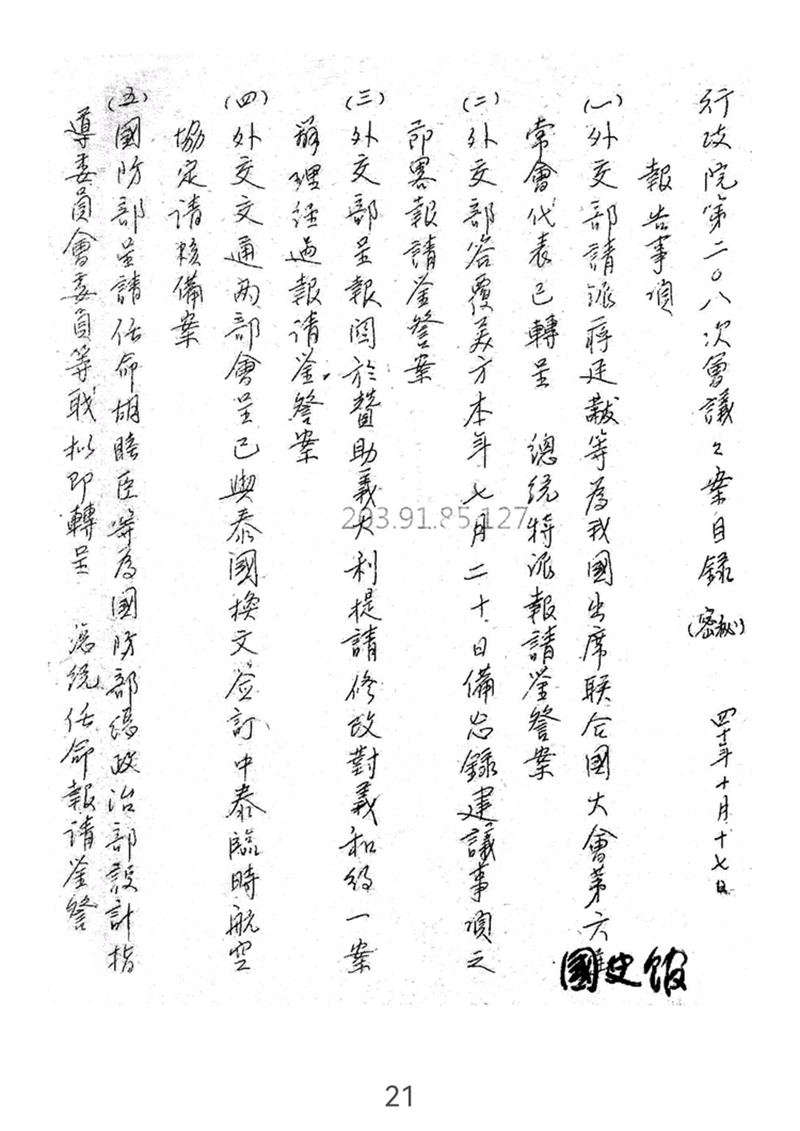 行政院第二〇八次會議之案目錄(秘密) 四十年十月十七日
報告事項
(一)外交部請派蔣廷黻等為我國出席联合國大會第六
常會代表已轉呈 總統特派報請鉴詧案
(二)外交部答覆美方本年七月二十日備忘錄建議事項之
節畧報請鉴詧案
(三)外交部呈報関於贊助義大利提請修改對義和約一案
辦理经過報请鉴詧案
(四)外交交通两部會呈已與泰國換文签訂中泰臨時航空
協定請核備案
(五)國防部呈請任命胡瞻臣等為國防部總政治部設計指
導委員會委員等職拟即轉呈 總統任命報請鉴詧
國史館
203.91.85.127
21